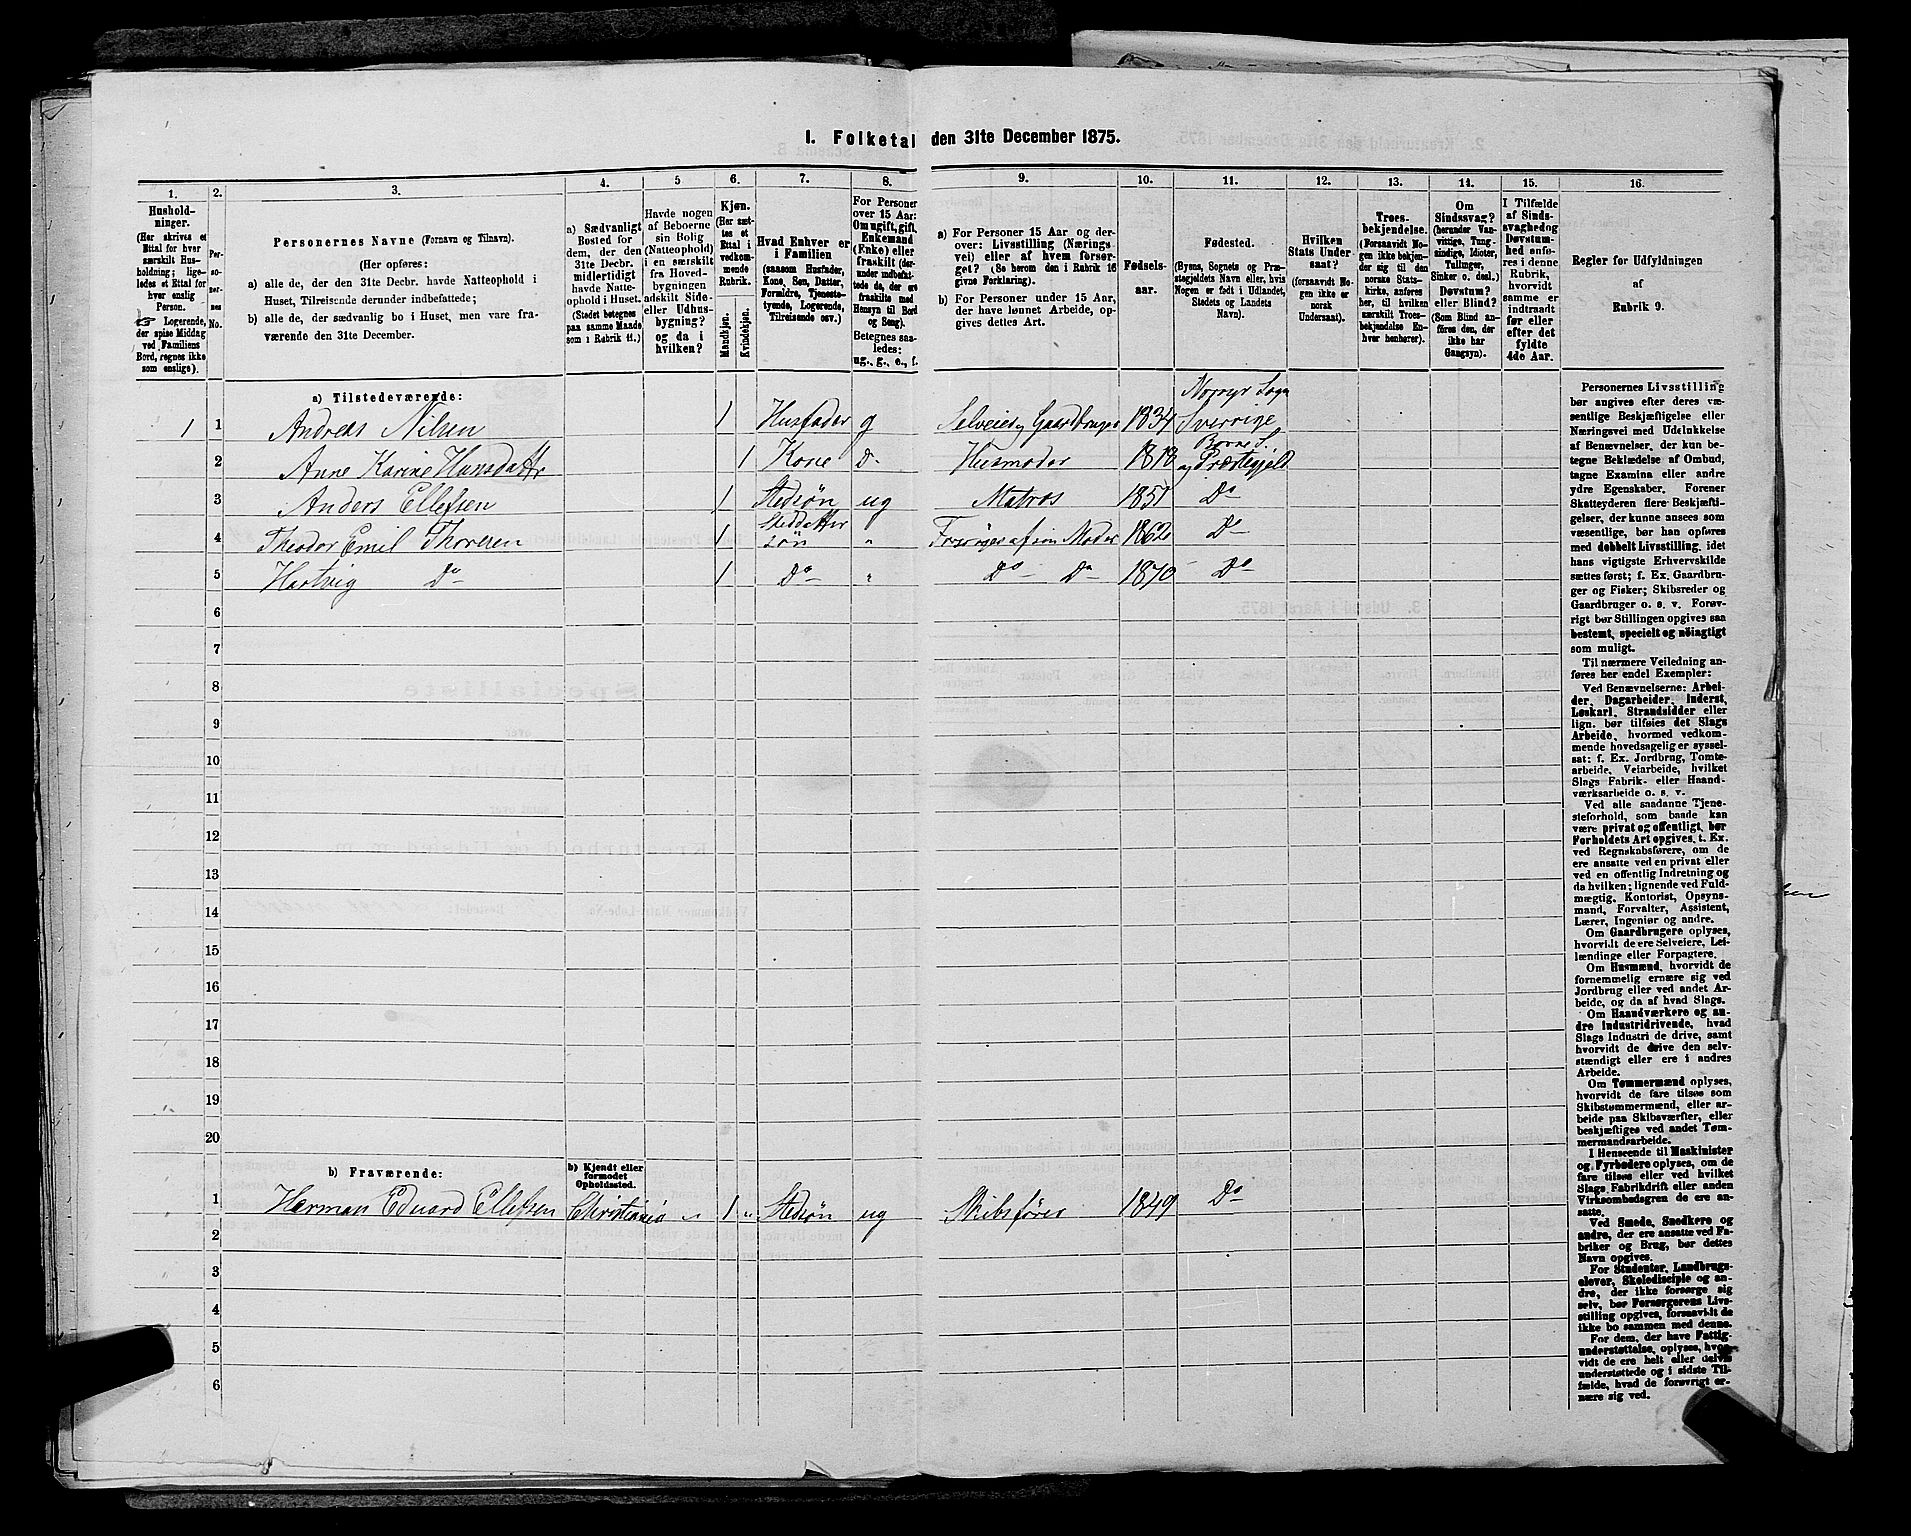 I. Folketal den 31te December 1875.
1. 2. 3. 4. 5 6. 7. 8. 9. 10. 11. 12. 13. 14. 15. 16.
Hushold-
ninger.
(Her skrives et
Ettal for hver
særskilt Hus-
holdning; lige-
ledes et Ettal
for hver
enslig
Person.
Logerende,
der spise Middag
ved Familiens
Bord, regnes ikke
som enslige).
Per-
so-
ner-
nes
No.
Personernes Navne (Fornavn og Tilnavn).
(Her opføres:
a) alle de, der den 31te Decbr. havde Natteophold i
Huset, Tilreisende derunder indbefattede;
b) alle de, der sædvanlig bo i Huset, men vare fra-
værende den 31te December.
a) Sædvanligt
Bosted for
dem, der den
31te Decbr.
midlertidigt
havde Natte-
ophold i Huset.
(Stedet betegnes
paa samme Maade
som i Rubrik 11.)
Havde nogen
af Beboerne
sin Bolig
(Natteophold)
i en særskilt
fra Hoved-
bygningen
adskilt Side-
eller Udhus-
bygning?
og da i
hvilken?
Kjøn.
(Her sæt-
tes et
Ettal i
vedkom-
mende
Rubrik.
Mandkjøn.
Kvindekjøn.
Hvad Enhver er
i Familien
(saasom Husfader,
Kone, Søn, Datter,
Forældre, Tjeneste-
tyende, Logerende,
Tilreisende osv.)
For Personer
over 15 Aar:
Om ugift, gift,
Enkemand
(Enke) eller
fraskilt (der-
under indbefat-
tede de, der ere
fraskilte med
Hensyn til Bord
og Seng).
Betegnes saa-
ledes:
ug., g., e., f.
a) For Personer 15 Aar og der-
over: Livsstilling (Nærings-
vei) eller af hvem forsør-
get? (Se herom den i Rubrik 16
givne Forklaring).
b) For Personer under 15 Aar,
der have lønnet Arbeide, op-
gives dettes Art.
Fødsels-
aar.
Fødested.
(Byens, Sognets og Præ-
stegjeldets Navn eller, hvis
Nogen er født i Udlandet,
Stedets og Landets
Navn).
Hvilken
Stats Under-
saat?
(forsaavidt No-
gen ikke er
norsk
Undersaat).
Troes-
bekjendelse.
(Forsaavidt No-
gen ikke bekjen-
der sig til den
norske Stats-
kirke, anføres
her, til hvilken
særskilt Troes-
bekjendelse En-
hver henhører).
Om
Sindssvag?
(herunder Van-
vittige, Tung-
sindige, Idioter,
Tullinger,
Sinker o. desl.)
Døvstum?
eller Blind?
(Som Blind an-
føres den, der
ikke har
Gangsyn).
I Tilfælde
af Sinds-
svaghed og
Døvstum-
hed anfø-
res i denne
Rubrik,
hvorvidt
samme er
indtraadt
før eller
efter det
fyldte
4de Aar.
Regler for Udfyldningen
af
Rubrik 9.
a) Tilstedeværende:
1 1 Andreas Nilsen 1 Husfader g Selveier Gaardbruger 1834 Sogn Sverrige
2 Anne Karine Hansdatter 1 Kone Do Husmoder 1818 Borre S. og Præstegjeld
3 Anders Ellefsen 1 Stedsøn ug Matros 1851 Do
4 Theodor Emil Thoresen 1 søn " Forsørges af sin Moder 1862 Do
5 Hartvig Do 1 Do " Do Do 1870 Do
6
7
8
9
10
11
12
13
14
15
16
17
18
19
20
b) Fraværende:
b) Kjendt eller
formodet
Opholdssted.
1 Herman Eduard Ellefsen Christiania " 1 " Stedsøn ug Skibsfører 1849 Do
2
3
4
5
6
Personernes Livsstilling
bør angives efter deres væ-
sentlige Beskjæftigelse eller
Næringsvei med Udelukkelse
af Benævnelser, der kun be-
tegne Beklædelse af Ombud,
tagne Examina eller andre
ydre Egenskaber. Forener
Skatteyderen flere Beskjæfti-
gelser, der kunne ansees som
væsentlige, bør han opføres
med dobbelt Livsstilling, idet
hans vigtigste Erhvervskilde
sættes først; f. Ex. Gaardbru-
ger og Fisker; Skibsreder og
Gaardbruger o. s. v. Forøv-
rigt bør Stillingen opgives saa
bestemt, specielt og nöiagtigt
som muligt.
Til nærmere Veiledning an-
føres her endel Exempler:
Ved Benævnelserne: Arbei-
der, Dagarbeider, Inderst,
Løskarl, Strandsidder eller
lign. bør tilføies det Slags
Arbeide, hvormed vedkom-
mende hovedsagelig er syssel-
sat: f. Ex. Jordbrug, Tomte-
arbeide, Veiarbeide, hvilket
Slags Fabrik- eller Haand-
værksarbeide o. s. v.
Ved alle saadanne Tjene-
steforhold, som baade kan
være privat og offentligt, bør
Forholdets Art opgives, t. Ex.
ved Regnskabsførere, om de
ere ansatte ved en privat eller
ved en offentlig Indretning og
da hvilken; lignende ved Fuld-
mægtig, Kontorist, Opsyns-
mand, Forvalter, Assistent,
Lærer, Ingeniør og andre.
Om Gaardbrugere oplyses,
hvorvidt de ere Selveiere, Lei-
lændinge eller Forpagtere.
Om Husmænd, hvorvidt de
fornemmelig ernære sig ved
Jordbrug eller ved andet Ar-
beide, og da af hvad Slags.
Om Haandværkere og an-
dre industridrivende, hvad
Slags Industri de drive, samt
hvorvidt de drive den selv-
stændigt eller ere i andres
Arbeide.
Om Tømmermænd oplyses,
hvorvidt de fare tilsøs som
Skibstømmermænd, eller ar-
beide paa Skibsværfter, eller
beskjæftiges ved andet Tøm-
mermandsarbeide.
I Henseende til Maskinister
og Fyrbødere oplyses, om de
fare tilsøs eller ved hvilket
Slags Fabrikdrift eller anden
Virksomhedsgren de ere an-
satte.
Ved Smede, Snedkere og
andre, der ere ansatte ved Fa-
briker og Brug, bør dettes
Navn opgives.
For Studenter, Landbrugs-
elever, Skoledisciple og an-
dre, der ikke forsørge sig
selv, bør Forsørgerens Livs-
stilling opgives, forsaavidt de
ikke bo sammen med denne.
For dem, der have Fattig-
understøttelse, oplyses, hvor-
vidt de ere helt eller delvis
understøttede og i sidste Til-
fælde, hvad de forøvrigt er-
nære sig ved.